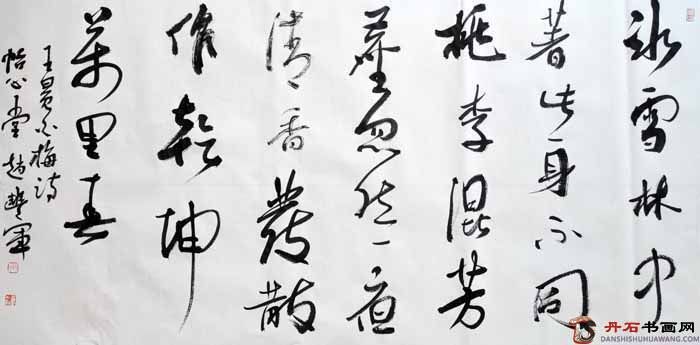 冰雪林中
著此身不同
桃李混芳
塵忽然一夜
清香發散
作乾坤
萬里春
王冕白梅詩
怡心堂趙豐軍
丹石书画网
DANSHISHUHUAWANG.COM